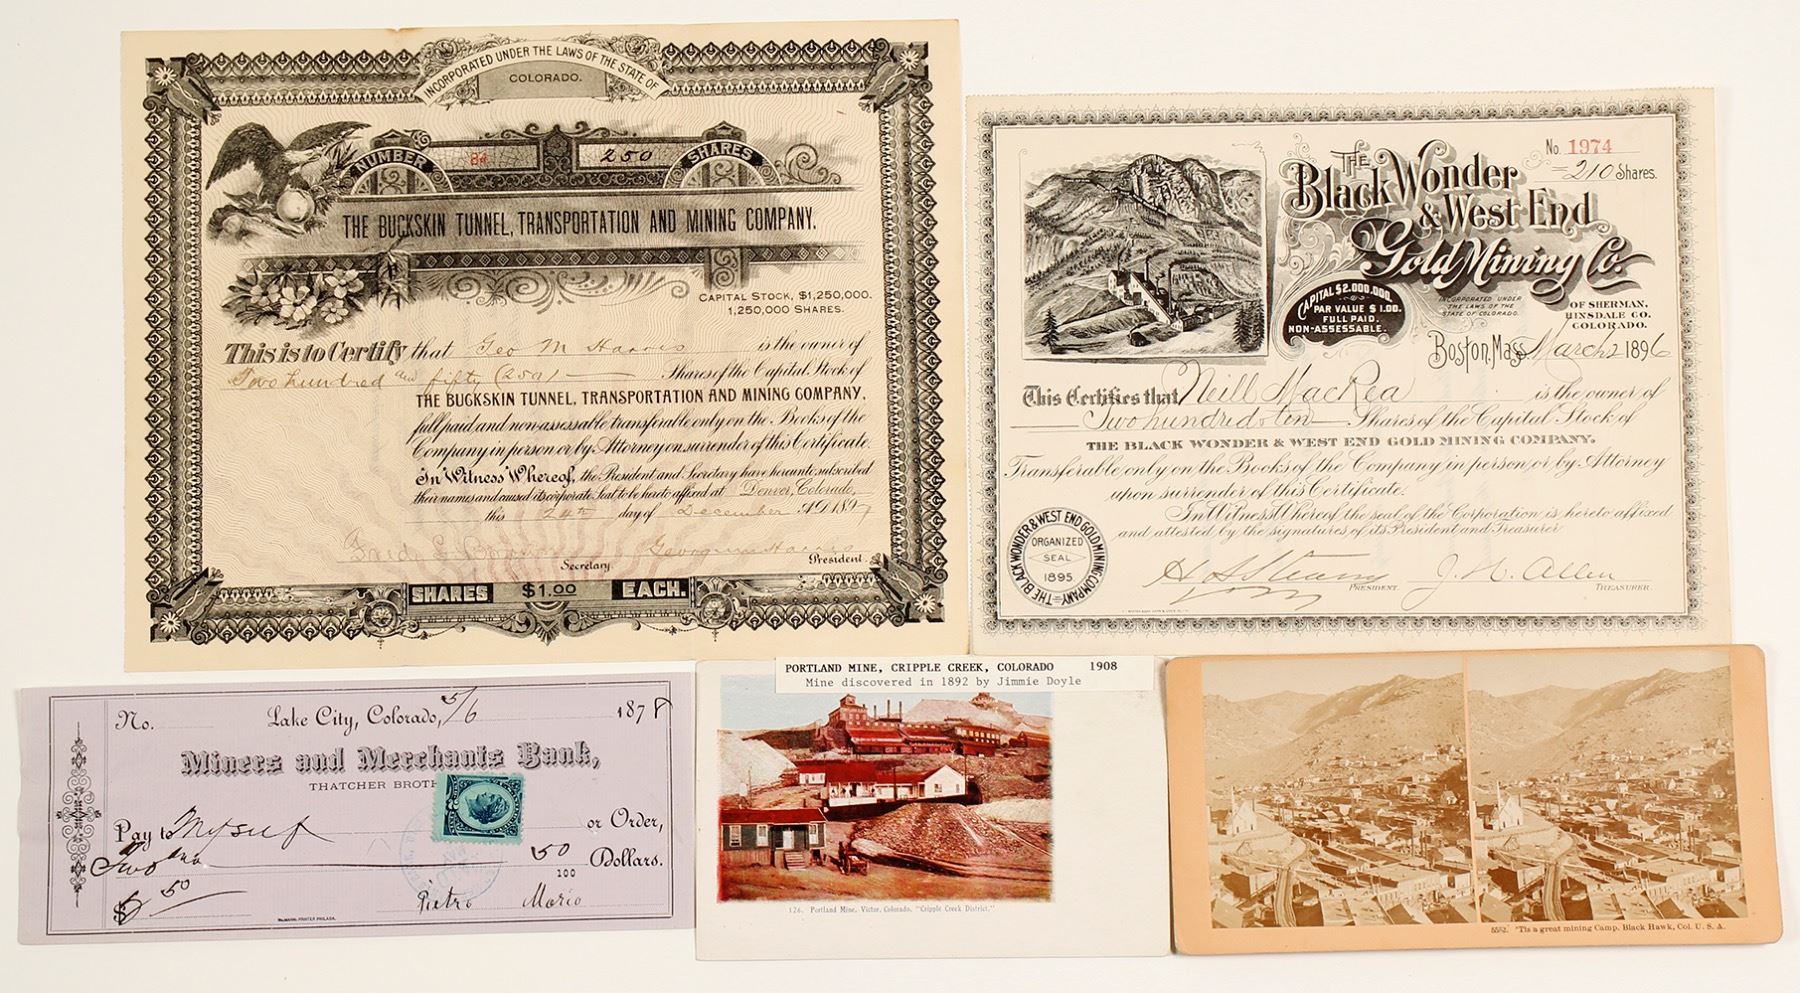 INCORPORATED UNDER THE LAWS OF THE STATE OF
COLORADO.
NUMBER 84 250 SHARES
THE BUCKSKIN TUNNEL, TRANSPORTATION AND MINING COMPANY.
CAPITAL STOCK, $1,250,000.
1,250,000 SHARES.
This is to Certify that Geo M Harris is the owner of
Two hundred and fifty (250) Shares of the Capital Stock of
THE BUCKSKIN TUNNEL, TRANSPORTATION AND MINING COMPANY,
full paid and non-assessable transferable only on the Books of the
Company in person or by Attorney on surrender of this Certificate.
In Witness Whereof, the President and Secretary have hereunto subscribed
their names and caused its corporate Seal to be hereto affixed at Denver, Colorado,
this 24th day of December A.D. 1897
Secretary. President.
SHARES $1.00 EACH.
No. 1974
210 Shares.
THE
Black Wonder
& West End
Gold Mining Co.
CAPITAL $2,000,000.
PAR VALUE $1.00.
FULL PAID.
NON-ASSESSABLE.
INCORPORATED UNDER
THE LAWS OF THE
STATE OF COLORADO.
OF SHERMAN,
HINSDALE CO.
COLORADO.
Boston, Mass March 2 1896
This Certifies that Neill MacRea is the owner of
Two hundred & ten Shares of the Capital Stock of
THE BLACK WONDER & WEST END GOLD MINING COMPANY.
Transferable only on the Books of the Company in person or by Attorney
upon surrender of this Certificate.
In Witness Whereof the seal of the Corporation is hereto affixed
and attested by the signatures of its President and Treasurer
THE BLACK WONDER & WEST END GOLD MINING COMPANY
ORGANIZED
SEAL
1895
J. H. Allen
PRESIDENT. TREASURER.
No. Lake City, Colorado, 5/6 1878
Miners and Merchants Bank,
THATCHER BROTH
Pay to Myself or Order,
Two and 50/100 Dollars.
$ 50
Pietro Mario
PORTLAND MINE, CRIPPLE CREEK, COLORADO 1908
Mine discovered in 1892 by Jimmie Doyle
126. Portland Mine, Victor, Colorado, "Cripple Creek District."
5552. 'Tis a great mining Camp. Black Hawk, Col. U. S. A.